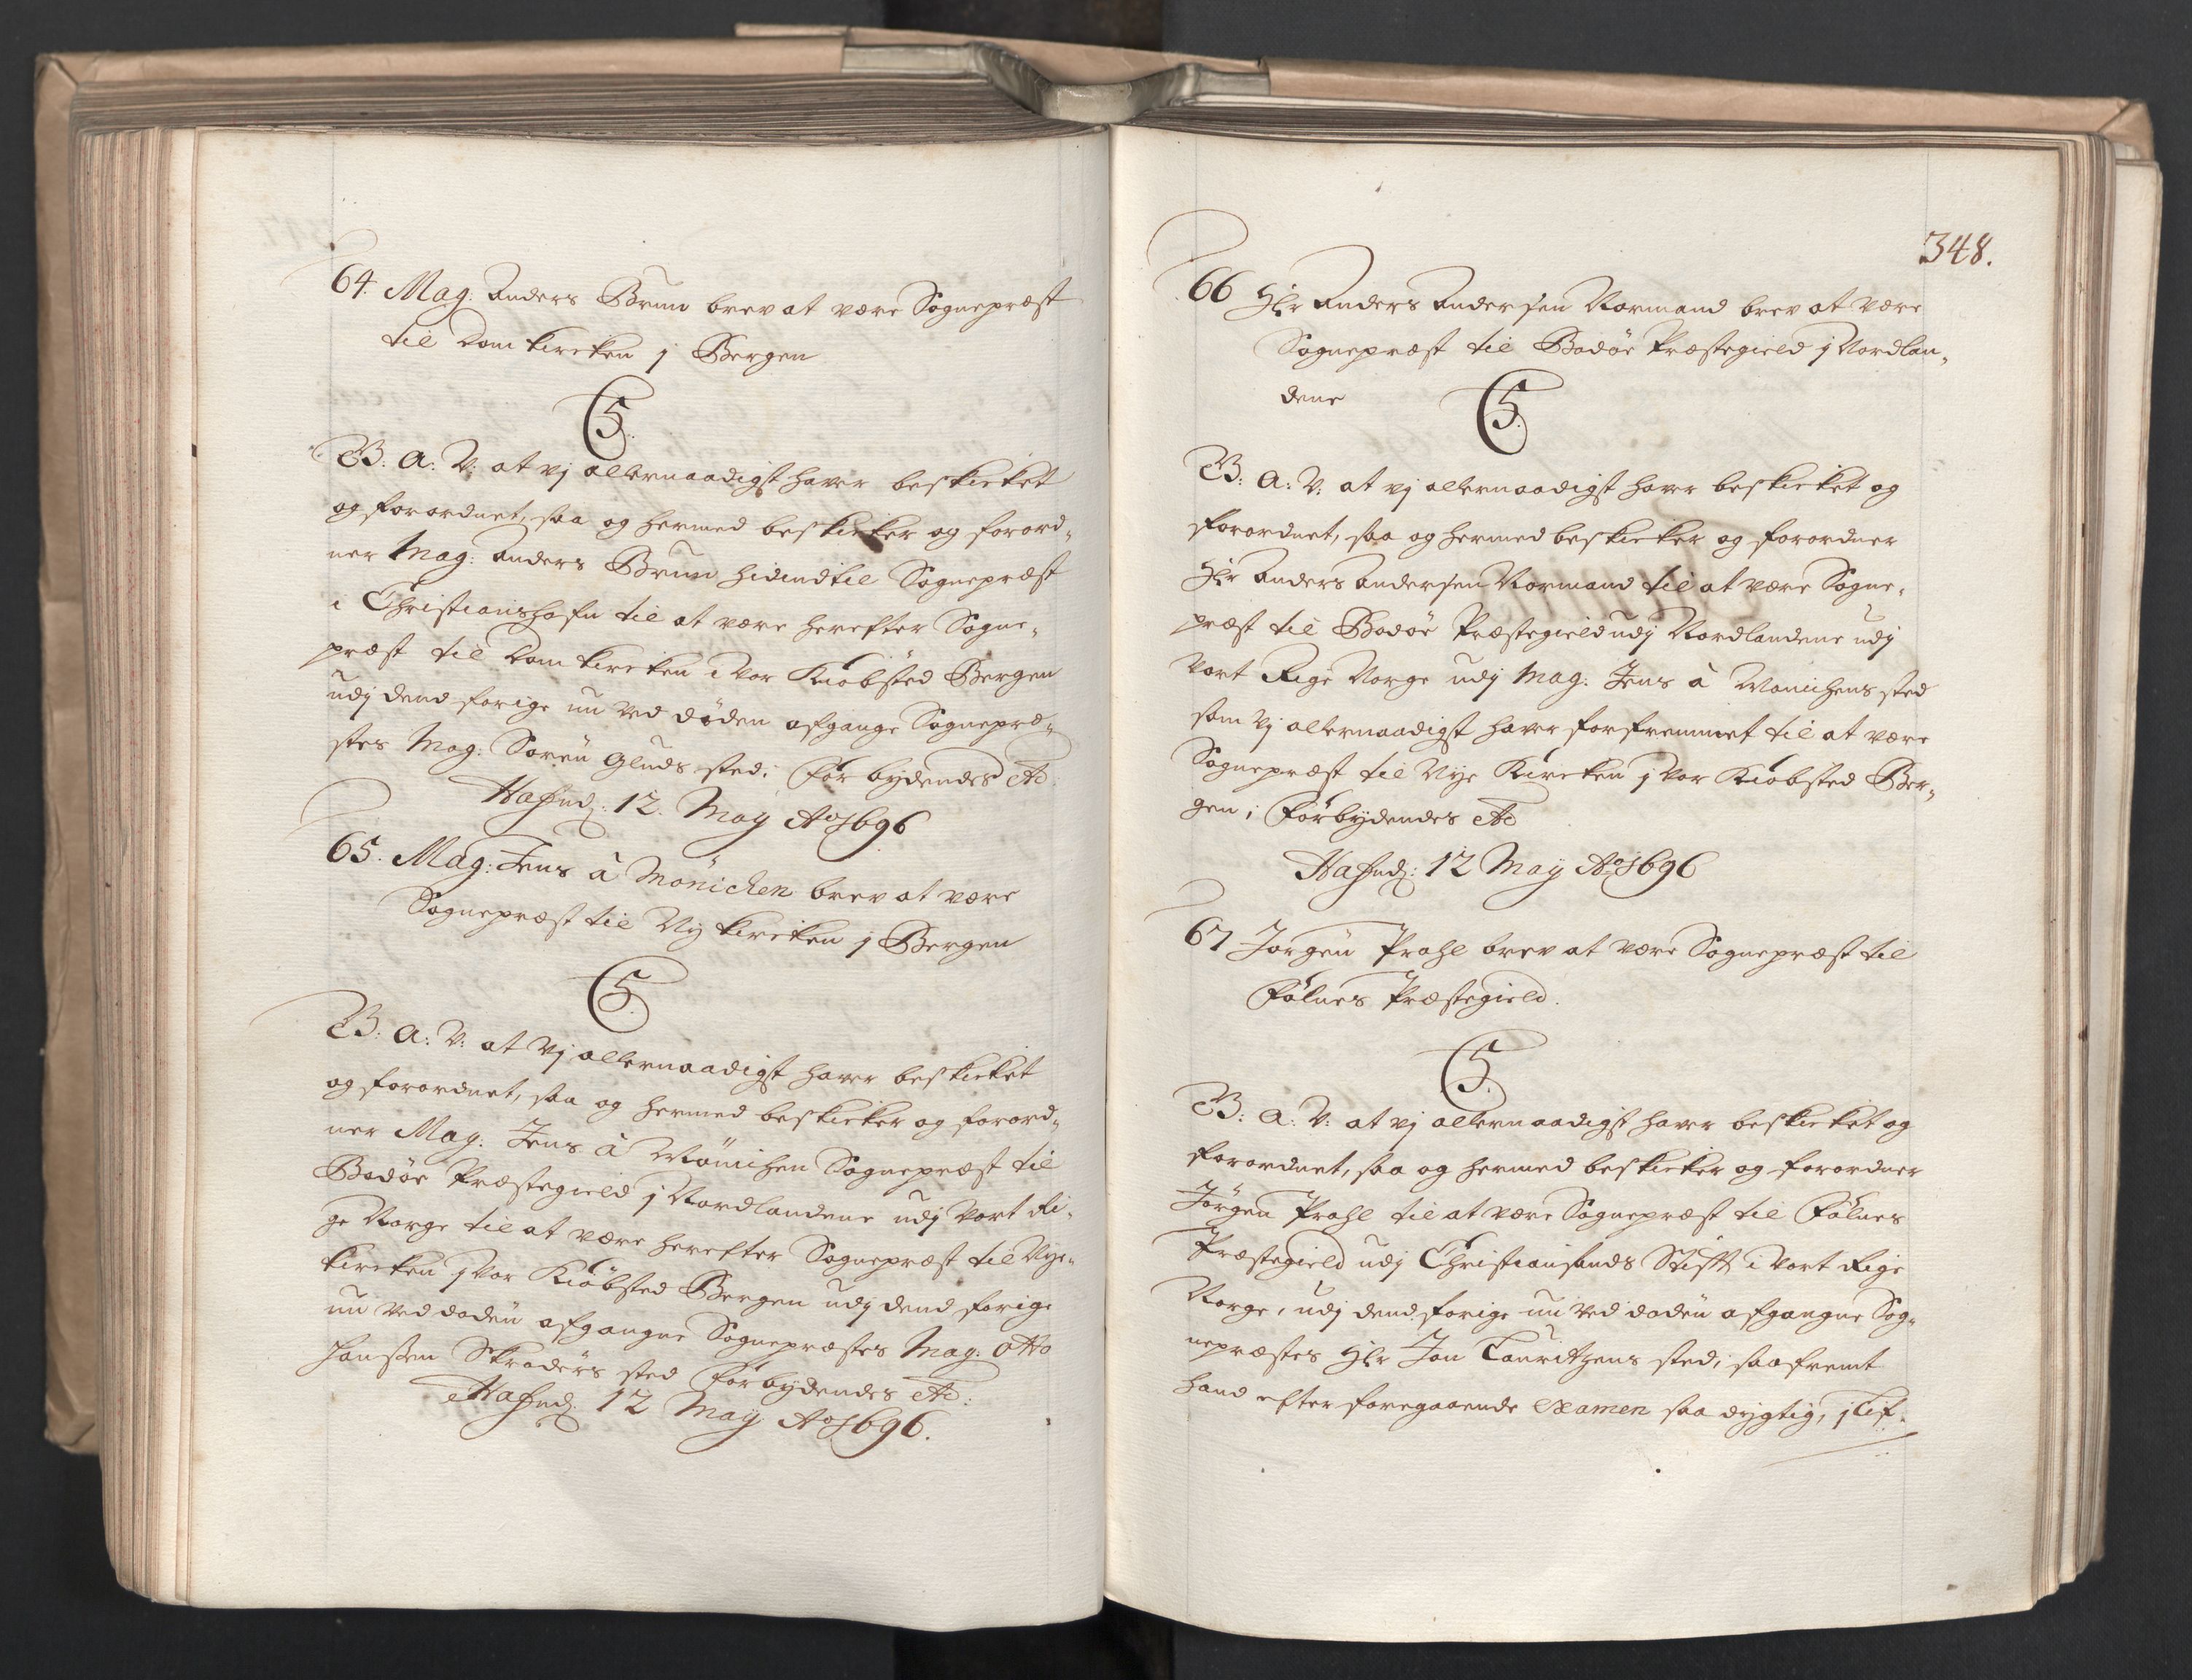 64. Mag: Anders Brun brev at være Sognepræst
til Domkircken j Bergen
C5.
B: A: V: at vj allernaadigst haver beskicket
og forordnet, saa og hermed beskicker og forord„
ner Mag: Anders Brun hidindtil Sognepræst
i Christianshafn til at være herefter Sogne„
præst til Domkircken i Vor Kiöbsted Bergen
udj dend forige nu ved döden afgangne Sognepræ„
stes Mag: Sören Gluds sted; Forbydendes etc
Hafniæ: 12. May Ao 1696
65. Mag: Jens à Mönichen brev at være
Sognepræst til Ny kircken j Bergen
C5.
B: A: V: at Vj allernaadigst haver beskicket
og forordnet, saa og hermed beskicker og forord„
ner Mag: Jens à Mönichen Sognepræst til
Bodöe Præstegield j Nordlandene udj Vort Ri„
ge Norge til at være herefter Sognepræst til Nye„
kircken j Vor Kiöbsted Bergen udj dend forige
nu ved döden afgangne Sognepræstes Mag: Otto
Janssen Skröders sted Forbydendes etc:
Hafniæ: 12 May Ao 1696.
348.
66 Hr Anders Andersen Normand brev at være
Sognepræst til Bodöe Præstegield j Nordlan„
dene
C5.
B: A: V: at vj allernaadigst haver beskicket og
forordnet, saa og hermed beskicker og forordner
Hr Anders Andersen Normand til at være Sogne„
præst til Bodöe Præstegield udj Nordlandene udj
Vort Rige Norge udj Mag: Jens à Mönichens sted
som Vj allernaadigst haver forfremmet til at være
Sognepræst til Nye Kircken j Vor Kiöbsted Ber„
gen; Forbydendes etc
Hafniæ: 12 May Ao 1696
67 Jörgen Prahl brev at være Sognepræst til
Fölnes Præstegield.
C5.
B: A: V: at vj allernaadigst haver beskicket og
forordnet, saa og hermed beskicker og forordner
Jörgen Prahl til at være Sognepræst til Fölnes
Præstegield udj Christiansands Stift i Vort Rige
Norge, udj dend forige nu ved döden afgangne Sog„
nepræstes Hr Jon Lauritzens sted; saafremt
hand efter foregaaende Examen saa dygtig, j lif„